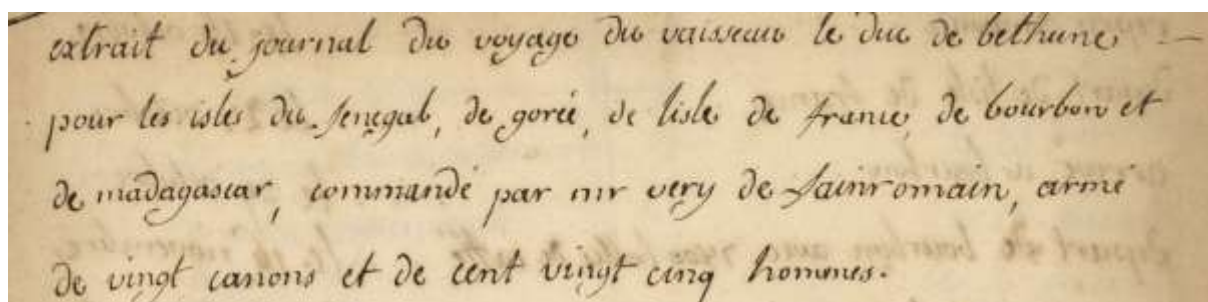 extrait du journal du voyage du vaisseau le duc de bethune
pour les isles du senegal, de gorée, de lisle de france, de bourbon et
de madagascar, commandé par mr very de sainromain, armé
de vingt canons et de cent vingt cinq hommes.